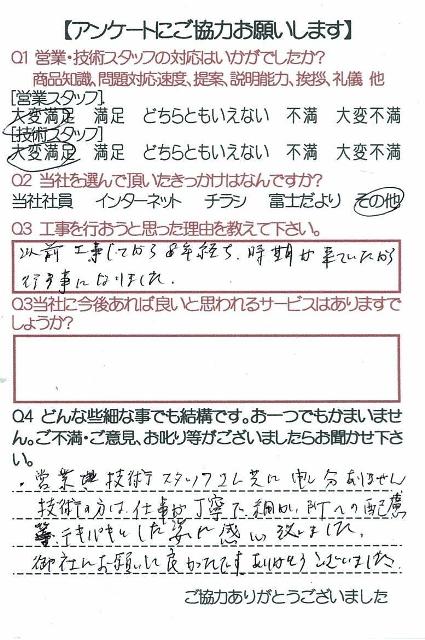 【アンケートにご協力お願いします】
Q1 営業・技術スタッフの対応はいかがでしたか?
商品知識、問題対応速度、提案、説明能力、挨拶、礼儀 他
[営業スタッフ]
大変満足 満足 どちらともいえない 不満 大変不満
[技術スタッフ]
大変満足 満足 どちらともいえない 不満 大変不満
Q2 当社を選んで頂いたきっかけはなんですか?
当社社員 インターネット チラシ 富士だより その他
Q3 工事を行おうと思った理由を教えて下さい。
以前工事してから8年経ち、時期が来ていたから
行う事になりました。
Q3当社に今後あれば良いと思われるサービスはありますで
しょうか?
Q4 どんな些細な事でも結構です。お一つでもかまいませ
ん。ご不満・ご意見、お叱り等がございましたらお聞かせ下さ
い。
・営業 技術スタッフさん共に申し分ありません
技術の方は、仕事が丁寧で、細かい所への配慮
等、テキパキとした姿に感心致しました。
御社にお願いして良かったです。ありがとうございました。
ご協力ありがとうございました